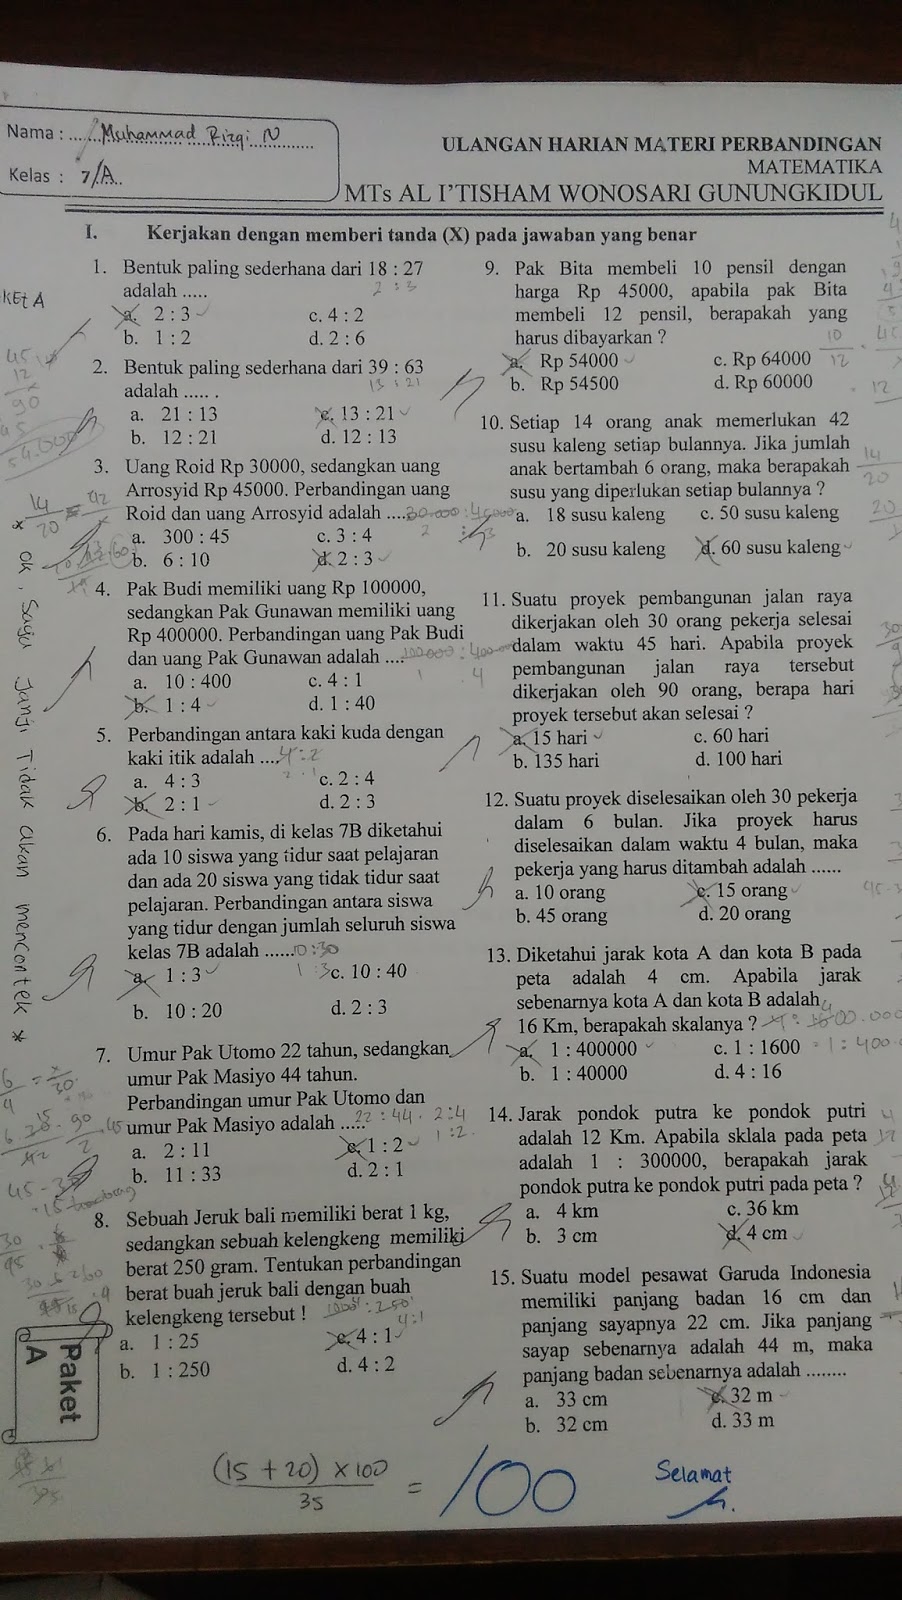 Nama : ...... Muhammad Rizqi N
Kelas : 7/A..
ULANGAN HARIAN MATERI PERBANDINGAN
MATEMATIKA
MTs AL I'TISHAM WONOSARI GUNUNGKIDUL
I. Kerjakan dengan memberi tanda (X) pada jawaban yang benar
1. Bentuk paling sederhana dari 18 : 27
adalah .....
2 : 3
a. 2 : 3 c. 4 : 2
b. 1 : 2 d. 2 : 6
2. Bentuk paling sederhana dari 39 : 63
adalah ..... .
13 : 21
a. 21 : 13 c. 13 : 21
b. 12 : 21 d. 12 : 13
3. Uang Roid Rp 30000, sedangkan uang
Arrosyid Rp 45000. Perbandingan uang
Roid dan uang Arrosyid adalah ....
a. 300 : 45 c. 3 : 4
b. 6 : 10 d. 2 : 3
4. Pak Budi memiliki uang Rp 100000,
sedangkan Pak Gunawan memiliki uang
Rp 400000. Perbandingan uang Pak Budi
dan uang Pak Gunawan adalah ....
1 : 4
a. 10 : 400 c. 4 : 1
b. 1 : 4 d. 1 : 40
5. Perbandingan antara kaki kuda dengan
kaki itik adalah .... 4 : 2
2 : 1
a. 4 : 3 c. 2 : 4
b. 2 : 1 d. 2 : 3
6. Pada hari kamis, di kelas 7B diketahui
ada 10 siswa yang tidur saat pelajaran
dan ada 20 siswa yang tidak tidur saat
pelajaran. Perbandingan antara siswa
yang tidur dengan jumlah seluruh siswa
kelas 7B adalah ...... 10 : 30
1 : 3
a. 1 : 3 c. 10 : 40
b. 10 : 20 d. 2 : 3
7. Umur Pak Utomo 22 tahun, sedangkan
umur Pak Masiyo 44 tahun.
Perbandingan umur Pak Utomo dan
umur Pak Masiyo adalah .... 22 : 44 . 2 : 4
1 : 2
a. 2 : 11 c. 1 : 2
b. 11 : 33 d. 2 : 1
8. Sebuah Jeruk bali memiliki berat 1 kg,
sedangkan sebuah kelengkeng memiliki
berat 250 gram. Tentukan perbandingan
berat buah jeruk bali dengan buah
kelengkeng tersebut !
4 : 1
a. 1 : 25 c. 4 : 1
b. 1 : 250 d. 4 : 2
9. Pak Bita membeli 10 pensil dengan
harga Rp 45000, apabila pak Bita
membeli 12 pensil, berapakah yang
harus dibayarkan ?
a. Rp 54000 c. Rp 64000
b. Rp 54500 d. Rp 60000
10. Setiap 14 orang anak memerlukan 42
susu kaleng setiap bulannya. Jika jumlah
anak bertambah 6 orang, maka berapakah
susu yang diperlukan setiap bulannya ?
a. 18 susu kaleng c. 50 susu kaleng
b. 20 susu kaleng d. 60 susu kaleng
11. Suatu proyek pembangunan jalan raya
dikerjakan oleh 30 orang pekerja selesai
dalam waktu 45 hari. Apabila proyek
pembangunan jalan raya tersebut
dikerjakan oleh 90 orang, berapa hari
proyek tersebut akan selesai ?
a. 15 hari c. 60 hari
b. 135 hari d. 100 hari
12. Suatu proyek diselesaikan oleh 30 pekerja
dalam 6 bulan. Jika proyek harus
diselesaikan dalam waktu 4 bulan, maka
pekerja yang harus ditambah adalah ......
a. 10 orang c. 15 orang
b. 45 orang d. 20 orang
13. Diketahui jarak kota A dan kota B pada
peta adalah 4 cm. Apabila jarak
sebenarnya kota A dan kota B adalah
16 Km, berapakah skalanya ?
a. 1 : 400000 c. 1 : 1600
b. 1 : 40000 d. 4 : 16
14. Jarak pondok putra ke pondok putri
adalah 12 Km. Apabila sklala pada peta
adalah 1 : 300000, berapakah jarak
pondok putra ke pondok putri pada peta ?
a. 4 km c. 36 km
b. 3 cm d. 4 cm
15. Suatu model pesawat Garuda Indonesia
memiliki panjang badan 16 cm dan
panjang sayapnya 22 cm. Jika panjang
sayap sebenarnya adalah 44 m, maka
panjang badan sebenarnya adalah ........
a. 33 cm c. 32 m
b. 32 cm d. 33 m
* ok, Saya Janji Tidak akan mencontek *
Paket
A
(15 + 20) x 100
35
= 100
Selamat